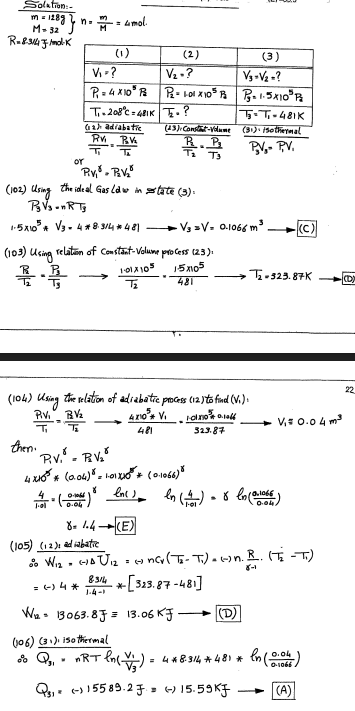 Solution:-
m = 128g
M = 32
n = m/M = 4 mol.
R = 8.314 J/mol.K
(1) (2) (3)
V₁ = ? V₂ = ? V₃ = V₂ = ?
P₁ = 4×10⁵ Pa P₂ = 1.01×10⁵ Pa P₃ = 1.5×10⁵ Pa
T₁ = 208°C = 481K T₂ = ? T₃ = T₁ = 481K
(12): adiabatic (23): Constant-Volume (31): isothermal
P₁V₁/T₁ = P₂V₂/T₂ P₂/T₂ = P₃/T₃ P₃V₃ = P₁V₁
or
P₁V₁^γ = P₂V₂^γ
(102) Using the ideal Gas Law in state (3):
P₃V₃ = nRT₃
1.5×10⁵ * V₃ = 4 * 8.314 * 481 → V₃ = V = 0.1066 m³ → (C)
(103) Using relation of Constant-Volume process (23):
P₂/T₂ = P₃/T₃ → 1.01×10⁵/T₂ = 1.5×10⁵/481 → T₂ = 323.87K → (D)
٢٠
22
(104) Using the relation of adiabatic process (12) to find (V₁):
P₁V₁/T₁ = P₂V₂/T₂ → 4×10⁵ * V₁/481 = 1.01×10⁵ * 0.1066/323.87 → V₁ ≅ 0.04 m³
then:
P₁V₁^γ = P₂V₂^γ
4×10⁵ * (0.04)^γ = 1.01×10⁵ * (0.1066)^γ
4/1.01 = (0.1066/0.04)^γ ln( ) → ln(4/1.01) = γ ln(0.1066/0.04)
γ = 1.4 → (E)
(105) (12): adiabatic
∴ W₁₂ = (-) Δ U₁₂ = (-) nCv (T₂ - T₁) = (-) n. R/γ-1 . (T₂ - T₁)
= (-) 4 * 8.314/1.4-1 * [323.87-481]
W₁₂ = 13063.8 J ≅ 13.06 KJ → (D)
(106) (31): isothermal
∴ Q₃₁ = nRT ln(V₁/V₃) = 4 * 8.314 * 481 * ln(0.04/0.1066)
Q₃₁ = (-) 15589.2 J ≅ (-) 15.59 KJ → (A)